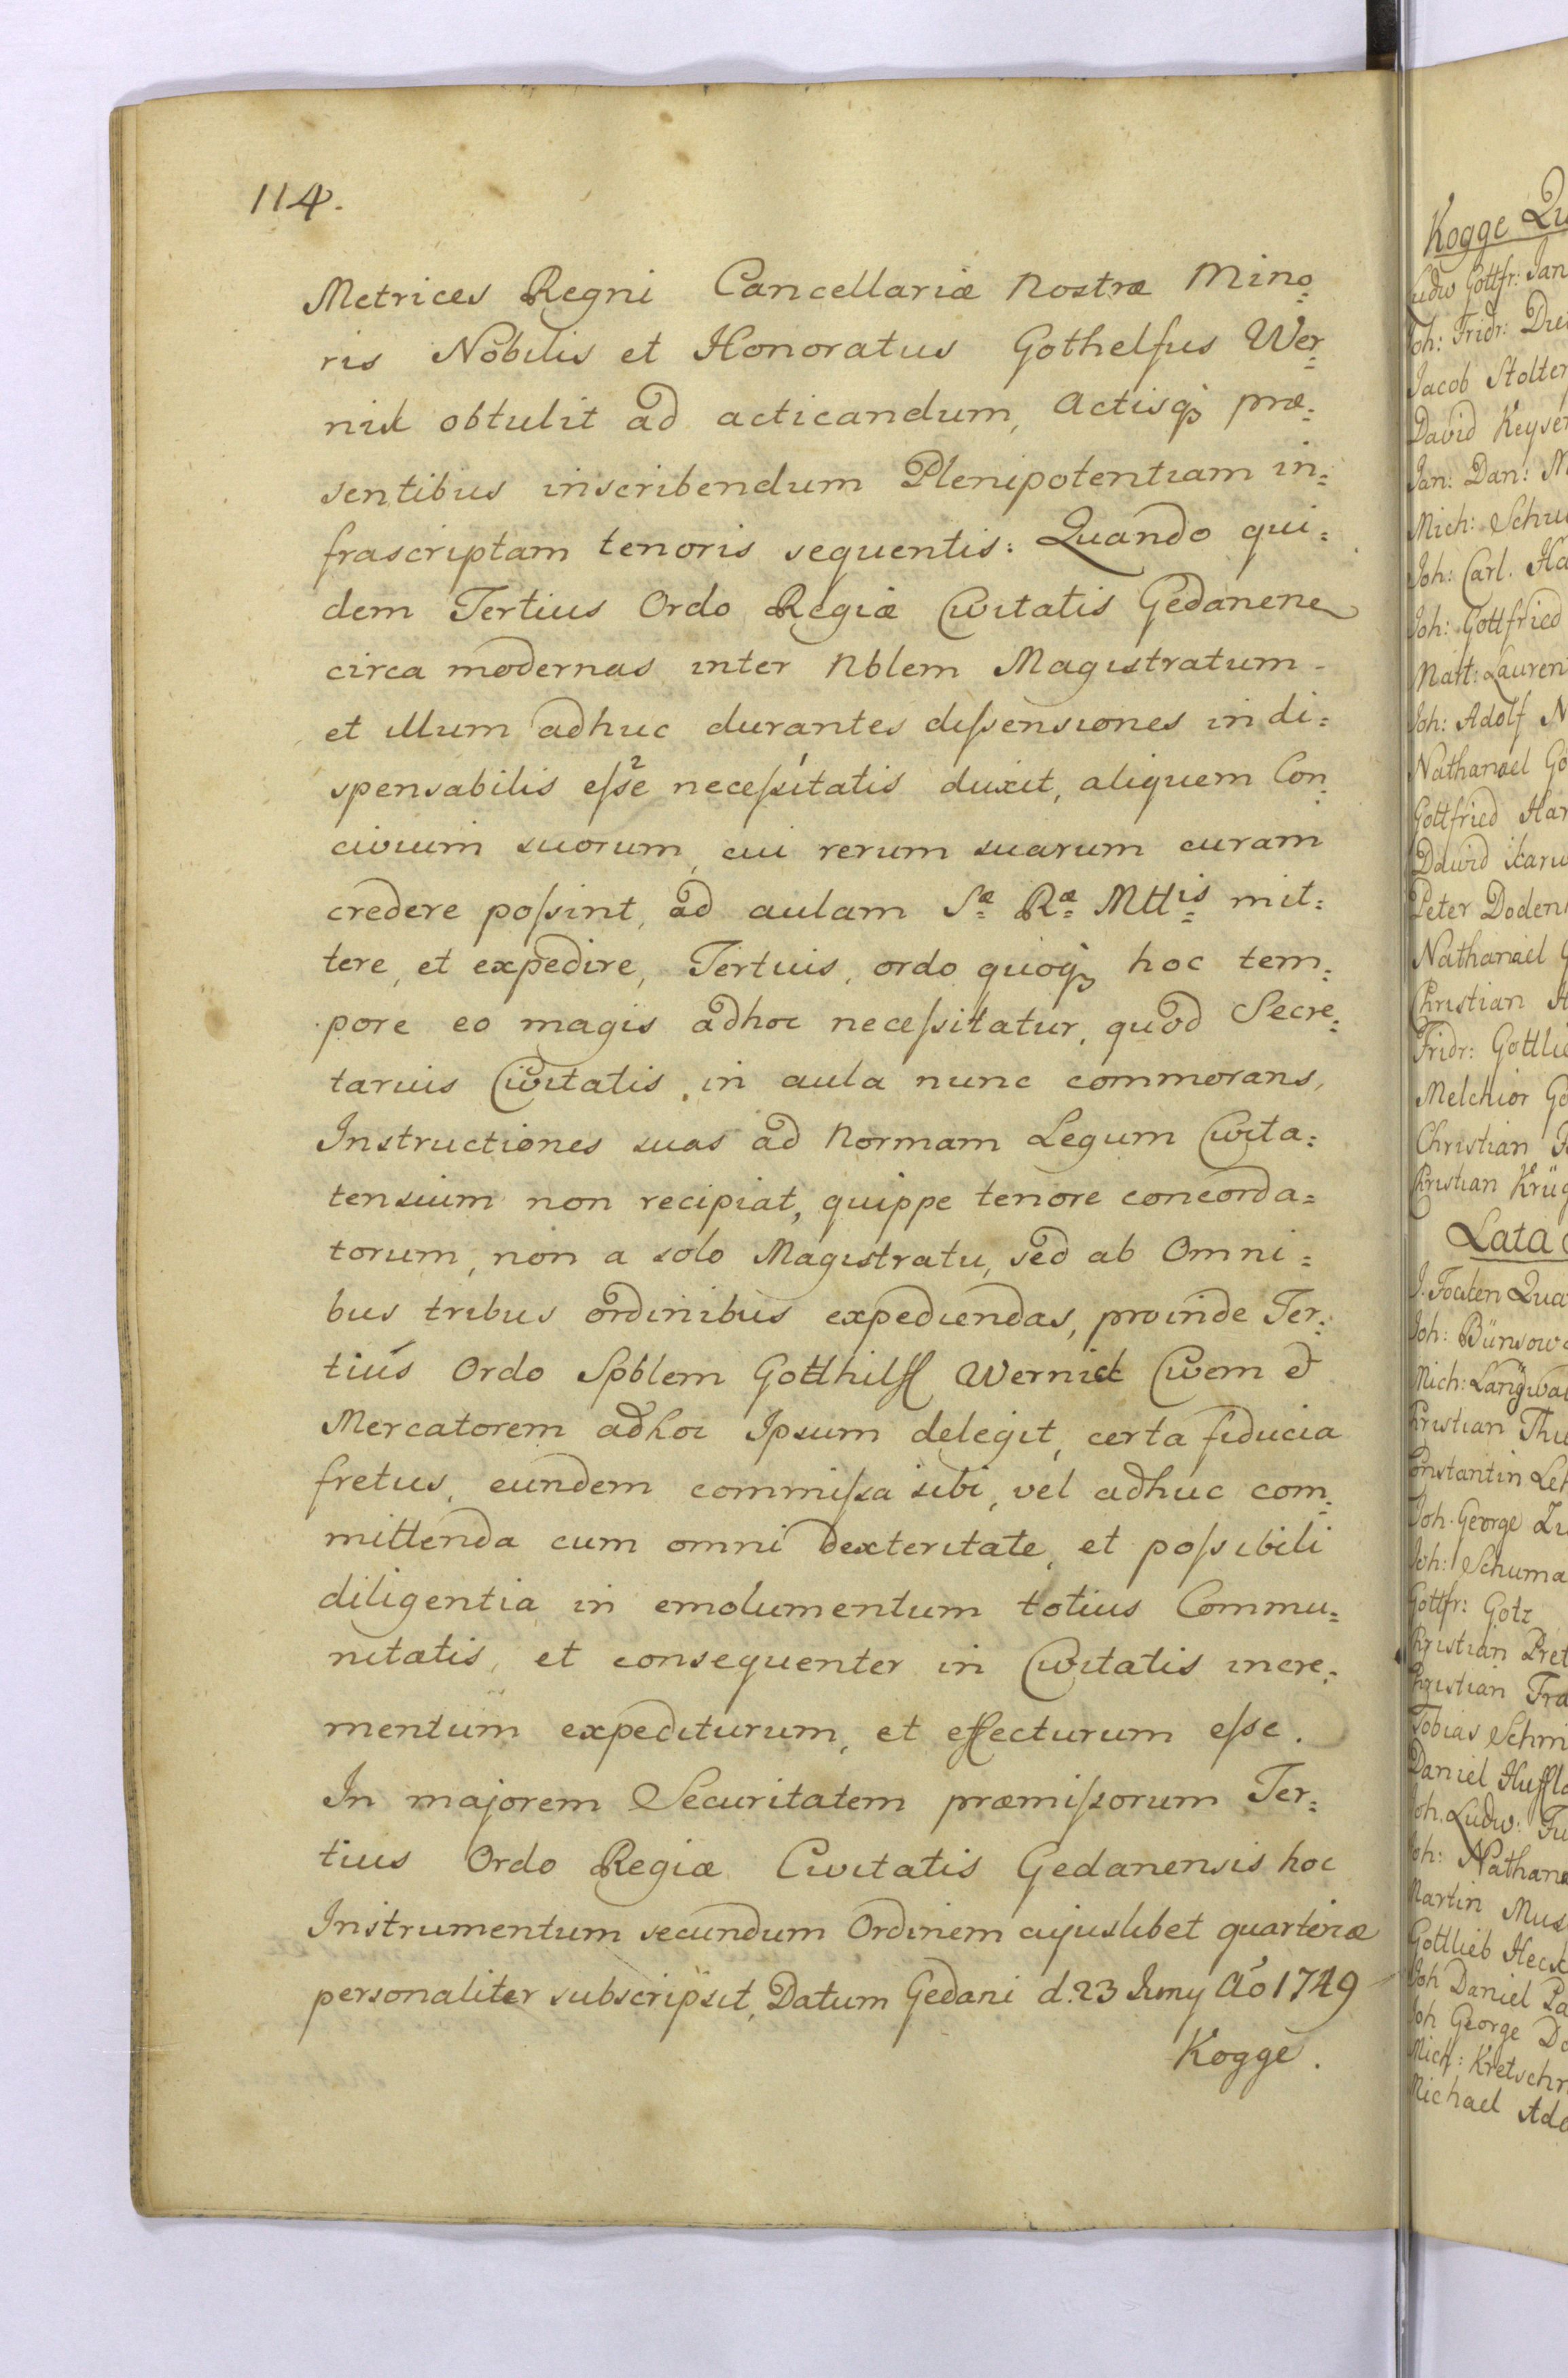 114.
Metrices Regni Cancellariæ Nostræ Mino=
ris Nobilis et Honoratus Gothelfus Wer=
nik obtulit ad acticandum, Actisq; præ=
sentibus inscribendum Plenipotentiam in=
frascriptam tenoris sequentis: Quando qui=
dem Tertius Ordo Regiæ Civitatis Gedanene
circa modernas inter Nblem Magistratum
et illum adhuc durantes dißensiones indi=
spensabilis eße neceßitatis duxit, aliquem Con=
civium suorum, cui rerum suarum curam
credere poßint, ad aulam Sæ Ræ Mttis mit=
tere, et expedire, Tertius, ordo quoq; hoc tem=
pore eo magis adhoc neceßitatur, quod Secre=
tarius Civitatis, in aula nunc commorans,
Instructiones suas ad Normam Legum Civita=
tensium non recipiat, quippe tenore concorda=
torum, non a solo Magistratu, sed ab Omni=
bus tribus ordinibus expediendas, proinde Ter=
tius Ordo Spblem Gotthilff Wernick Civem et
Mercatorem adhoc Ipsum delegit, certa fiducia
fretus, eundem commißa sibi, vel adhuc com=
mittenda cum omni Dexteritate, et poßibili
diligentia in emolumentum totius Commu=
nitatis, et consequenter in Civitatis incre=
mentum expediturum, et effecturum eße.
In majorem Securitatem præmißorum Ter=
tius Ordo Regiæ Civitatis Gedanensis hoc
Instrumentum secundum Ordinem cujuslibet quarteriæ
personaliter subscripsit, Datum Gedani d. 23 Juny Ao 1749
Kogge.
Kogge Qu
Ludw Gottfr: Jan
Joh: Fridr:
Jacob Stolter
David Keyser
Jan: Dan:
Mich: Schu
Joh: Carl. Ha
Joh: Gottfried
Natt: Lauren
Joh: Adolf N
Nathanael Go
Gottfried Har
David
Peter Doden
Nathanael G
Christian
Fridr: Gottlie
Melchior Go
Christian
Christian Krüg
Lata
J. Focten Qua
Joh: Bünsow
Mich: Langwal
Christian Thi
Constantin Leh
Joh. George
Joh: Schuma
Gottfr: Götz
Christian Pret
Christian Fra
Tobias Schmi
Daniel Huffla
Joh. Ludw:
Joh: Nathana
Martin Mus
Gottlieb Heck
Joh Daniel Pa
Joh George Do
Mich: Kretschm
Michael Ade